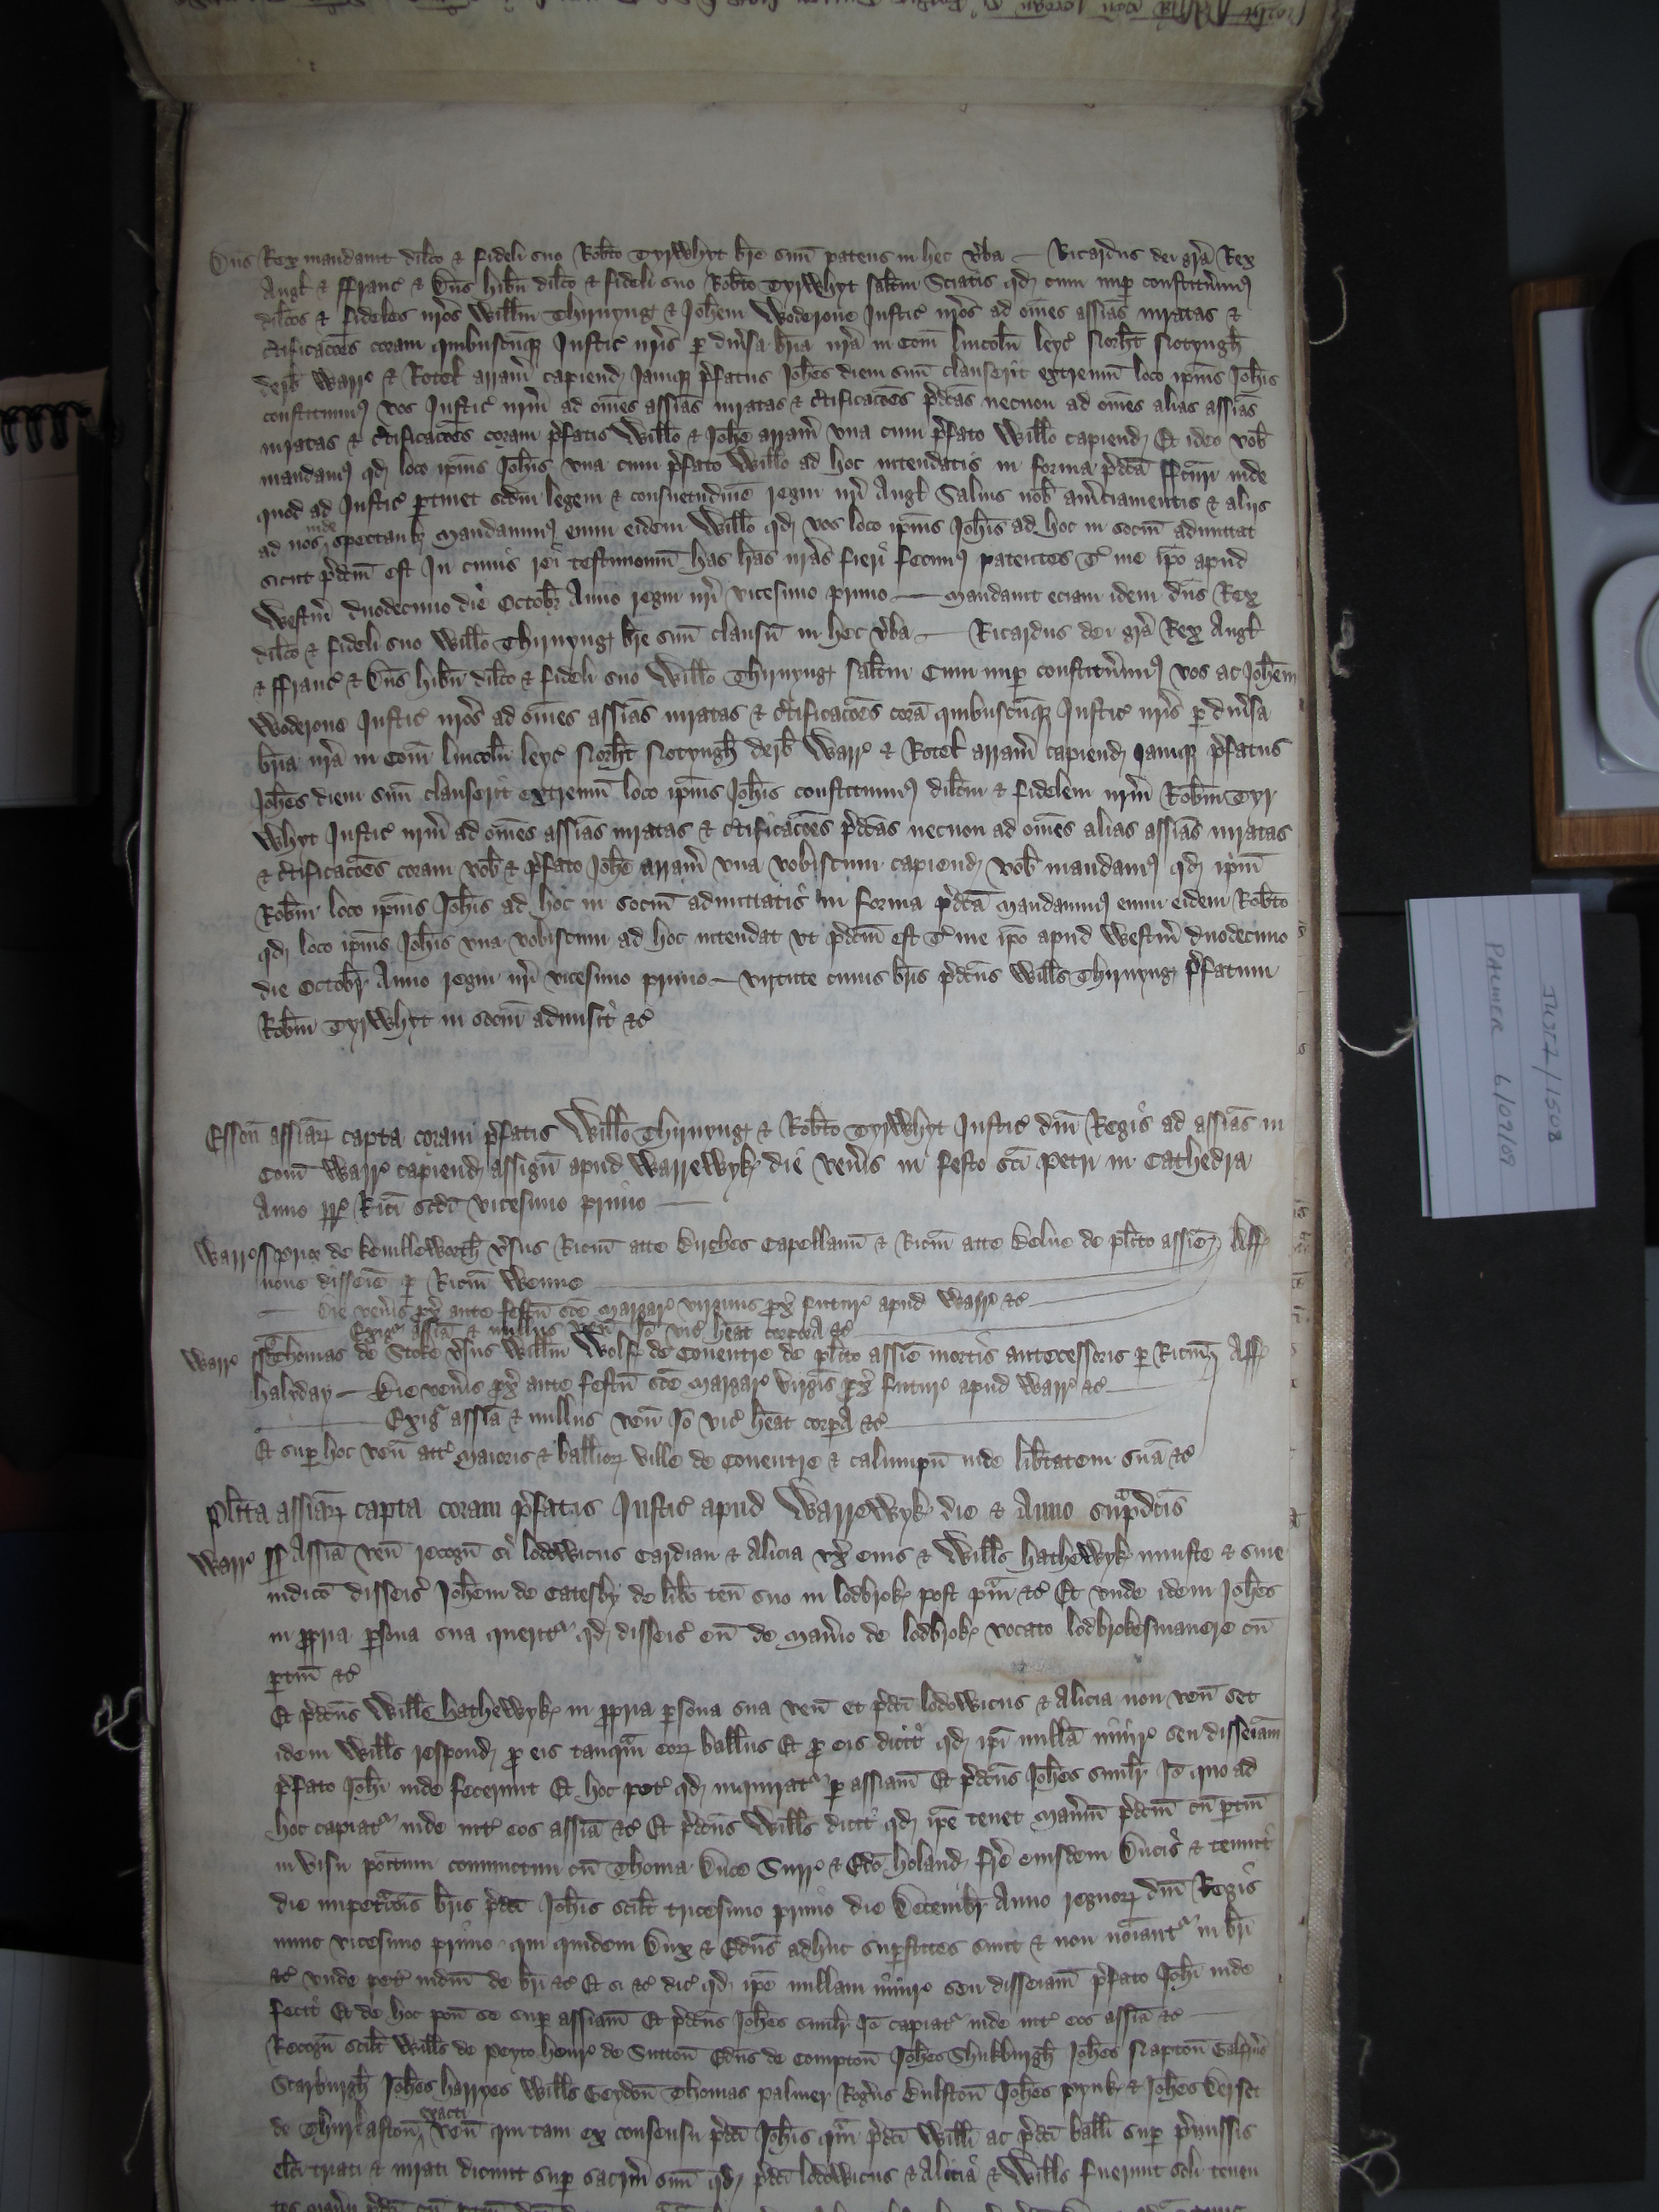 Dns Rex mandavit dilco & fideli suo Robto Tyrwhyt bre suu patens in hec vba — Ricardus dei gra Rex
Angl & Franc & Dns hibn dilco & fideli suo Robto Tyrwhyt saltm Sciatis qd cum nup constituim9
dilcos & fideles nros Willm Thirnyng & Johem Woderoue Justic nros ad omes assias iuratas &
ctificacoes coram quibuscumq Justic nris p divsa bria nra in Com Lincoln Leyc Norht Notyngh
derb Warr & Rotel arram capiend Iamq pfatus Johes diem suu clauserit extremu loco ipius Johis
constituim9 vos Justic nrm ad omes assias iuratas & ctificacoes pdcas necnon ad omes alias assias
iuratas & ctificacoes coram pfatis Willo & Johe arram vna cum pfato Willo capiend Et ideo vob
mandam9 qd loco ipius Johis vna cum pfato Willo ad hoc intendatis in forma pdca ffcuri inde
quod ad Justic ptinet scdm legem & consuetudine regni nri Angl Saluis nob amciamentis & alijs
ad nos inde spectantib Mandauim9 enim eidem Willo qd vos loco ipius Johis ad hoc in sociu admittat
sicut pdcm est In cuius rei testimoniu has lras nras fieri fecim9 patentes T me ipo apud
Westm duodecimo die Octobr Anno regni nri vicesimo primo — Mandauit eciam idem dns Rex
dilco & fideli suo Willo Thirnyng bre suu clausu in hec vba — Ricardus dei gra Rex Angl
& ffranc & Dns hibn dilco & fideli suo Willo Thirnyng saltm Cum nup constituim9 vos ac Johem
Woderoue Justic nros ad omes assias iuratas & ctificacoes cora quibuscumq Justic nris p divsa
bria nra in Com Lincoln Leyc Norht Notyngh derb Warr & Rotel arram capiend Iamq pfatus
Johes diem suu clauserit extremu loco ipius Johis constituim9 dilcm & fidelem nrm Robtm Tyr
whyt Justic nrm ad omes assias iuratas & ctificacoes pdcas necnon ad omes alias assias iuratas
& ctificacoes coram vob & pfato Johe arram vna vobiscum capiend vob mandam9 qd ipm
Robtm loco ipius Johis ad hoc in sociu admittatis in forma pdca Mandauim9 enim eidem Robto
qd loco ipius Johis vna vobiscum ad hoc intendat vt pdcm est T me ipo apud Westm duodecimo
die Octobr Anno regni nri vicesimo primo — virtute cuius bris pdcus Wills Thirnyng pfatum
Robtm Tyrwhyt in sociu admisit &c
Esson assiar capta coram pfatis Willo Thirnyng & Robto Tyrwhyt Justic dni Regis ad assias in
Com Warr capiend assign apud Warrewyk die Venis in festo sci Petri in Cathedra
Anno rr Rici scdi vicesimo primo —
Warr ss Prior de Kenilleworth vsus Ricm atte Kirches Capellanu & Ricm atte Belne de plito assie Aff
noue disseie p Ricm Wenne
Die venis px ante festu sce Margar virginis px futur apud Warr &c
Exigr assia & nullus ven Io vic heat corpora &c
Warr ss Thomas de Stoke vsus Willm Wolf de Couentre de plito assie mortis antecessoris p Ricm Aff
halyday — Die venis px ante festu sce Margar virgis px futur apud Warr &c
Exigr assia & nullus ven Io vic heat corpora &c
Et sup hoc ven att Maioris & ballior ville de Couentre & calumpn inde libtatem sua &c
Plita assiar capta coram pfatis Justic apud Warrewyk die & Anno supadcis
Warr ss Assia ven recogn si Lodowicus Cardian & Alicia vx eius & Wills hathewyk iniuste & sine
iudico disseis Johem de Catesby de libo ten suo in Lodbrok post pam &c Et vnde idem Johes
in ppria psona sua queritr qd disseis eu de Manio de Lodbrok vocato lodbrokesmanere cu
ptin &c
Et pdcus Wills hathewyk in ppria psona sua ven et pdci lodowicus & Alicia non ven set
idem Wills respond p eis tanqam eor ballius Et p eis dicit qd ipi nulla iniur seu disseiam
pfato Johi inde fecerunt Et hoc pet qd inquiratr p assiam Et pdcus Johes similr Io quo ad
hoc capiatr inde int eos assia &c Et pdcus Wills dicit qd ipe tenet Maniu pdcm cu ptin
in visu positum coniunctim cu Thoma Duce Surr & Edo holand fre eiusdem Ducis & tenuit
die impetracois bris pdci Johis scilt tricesimo primo die Decembr Anno regnor dni Regis
nunc vicesimo primo qui quidem Dux & Edus adhuc supstites sunt & non noiantr in bri
&c vnde pet iudm de bri &c Et si &c dic qd ipe nullam iniur seu disseiam pfato Johi inde
fecit Et de hoc pon se sup assiam Et pdcus Johes similr Io capiatr inde int eos assia &c —
Recogn scilt Wills de Peyto Henr de Sutton Edus de Compton Johes Shukburgh Johes Napton Galfrus
Starburgh Johes harryes Wills Geydon Thomas Palmer Rogus Dulston Johes Pynk & Johes Derset
de Thurlaston exacti ven qui tam ex consensu pdci Johis qam pdci Willi ac pdci balli sup pmissis
elci triati & iurati dicunt sup sacrm suu qd pdci lodowicus & Alicia & Wills fuerunt soli tenen
JUST 1/1508
PALMER 6/02/09